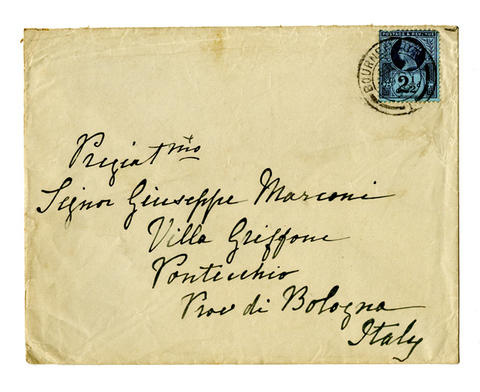 POSTAGE & REVENUE
BOURNEMOUTH
2½
Pregiatmo
Signor Giuseppe Marconi
Villa Griffone
Pontecchio
Prov di Bologna
Italy